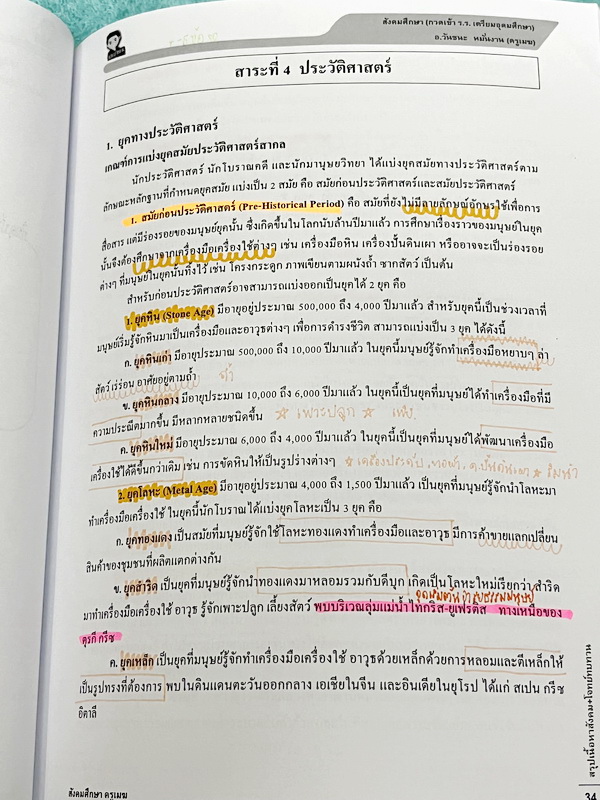 สังคมศึกษา (กวดเข้า ร.ร. เตรียมอุดมศึกษา)
อ.วันชนะ หมั่นงาน (ครูเมฆ)
สาระที่ 4 ประวัติศาสตร์
1. ยุคทางประวัติศาสตร์
เกณฑ์การแบ่งยุคสมัยประวัติศาสตร์สากล
นักประวัติศาสตร์ นักโบราณคดี และนักมานุษยวิทยา ได้แบ่งยุคสมัยทางประวัติศาสตร์ตาม
ลักษณะหลักฐานที่กำหนดยุคสมัย แบ่งเป็น 2 สมัย คือ สมัยก่อนประวัติศาสตร์และสมัยประวัติศาสตร์
1. สมัยก่อนประวัติศาสตร์ (Pre-Historical Period) คือ สมัยที่ยังไม่มีลายลักษณ์อักษรใช้เพื่อการ
สื่อสาร แต่มีร่องรอยของมนุษย์ยุคนั้น ซึ่งเกิดขึ้นในโลกนับล้านปีมาแล้ว การศึกษาเรื่องราวของมนุษย์ในยุค
นั้นจึงต้องศึกษาจากเครื่องมือเครื่องใช้ต่างๆ เช่น เครื่องมือหิน เครื่องปั้นดินเผา หรืออาจจะเป็นร่องรอย
ต่างๆ ที่มนุษย์ในยุคนั้นทิ้งไว้ เช่น โครงกระดูก ภาพเขียนตามผนังถ้ำ ซากสัตว์ เป็นต้น
สำหรับก่อนประวัติศาสตร์อาจสามารถแบ่งออกเป็นยุคได้ 2 ยุค คือ
1. ยุคหิน (Stone Age) มีอายุอยู่ประมาณ 500,000 ถึง 4,000 ปีมาแล้ว สำหรับยุคนี้เป็นช่วงเวลาที่
มนุษย์เริ่มรู้จักหินมาเป็นเครื่องมือและอาวุธต่างๆ เพื่อการดำรงชีวิต สามารถแบ่งเป็น 3 ยุค ได้ดังนี้
ก. ยุคหินเก่า มีอายุประมาณ 500,000 ถึง 10,000 ปีมาแล้ว ในยุคนี้มนุษย์รู้จักทำเครื่องมือหยาบๆ ล่า
สัตว์ เร่ร่อน อาศัยอยู่ตามถ้ำ ถ้ำ
ข. ยุคหินกลาง มีอายุประมาณ 10,000 ถึง 6,000 ปีมาแล้ว ในยุคนี้เป็นยุคที่มนุษย์ได้ทำเครื่องมือที่มี
ความประณีตมากขึ้น มีหลากหลายชนิดขึ้น ☆ เพาะปลูก ☆
ค. ยุคหินใหม่ มีอายุประมาณ 6,000 ถึง 4,000 ปีมาแล้ว ในยุคนี้เป็นยุคที่มนุษย์ได้พัฒนาเครื่องมือ
เครื่องใช้ได้ดีขึ้นกว่าเดิม เช่น การขัดหินให้เป็นรูปร่างต่างๆ
2. ยุคโลหะ (Metal Age) มีอายุอยู่ประมาณ 4,000 ถึง 1,500 ปีมาแล้ว เป็นยุคที่มนุษย์รู้จักนำโลหะมา
ทำเครื่องมือเครื่องใช้ ในยุคนี้นักโบราณ ได้แบ่งยุคโลหะเป็น 3 ยุค คือ
ก. ยุคทองแดง เป็นสมัยที่มนุษย์รู้จักใช้โลหะทองแดงทำเครื่องมือและอาวุธ มีการค้าขายแลกเปลี่ยน
สินค้าของชุมชนที่ผลิตแตกต่างกัน
ข. ยุคสำริด เป็นยุคที่มนุษย์รู้จักนำทองแดงมาหลอมรวมกับดีบุก เกิดเป็นโลหะใหม่เรียกว่า สำริด
มาทำเครื่องมือเครื่องใช้ อาวุธ รู้จักเพาะปลูก เลี้ยงสัตว์ พบบริเวณลุ่มแม่น้ำไทกริส-ยูเฟรติส ทางเหนือของ
ตุรกี กรีซ
ค. ยุคเหล็ก เป็นยุคที่มนุษย์รู้จักทำเครื่องมือเครื่องใช้ อาวุธด้วยเหล็กด้วยการหลอมและตีเหล็กให้
เป็นรูปทรงที่ต้องการ พบในดินแดนตะวันออกกลาง เอเชียในจีน และอินเดียในยุโรป ได้แก่ สเปน กรีซ
อิตาลี
สรุปเนื้อหาสังคม+โจทย์ทบทวน
สังคมศึกษา ครูเมฆ
34